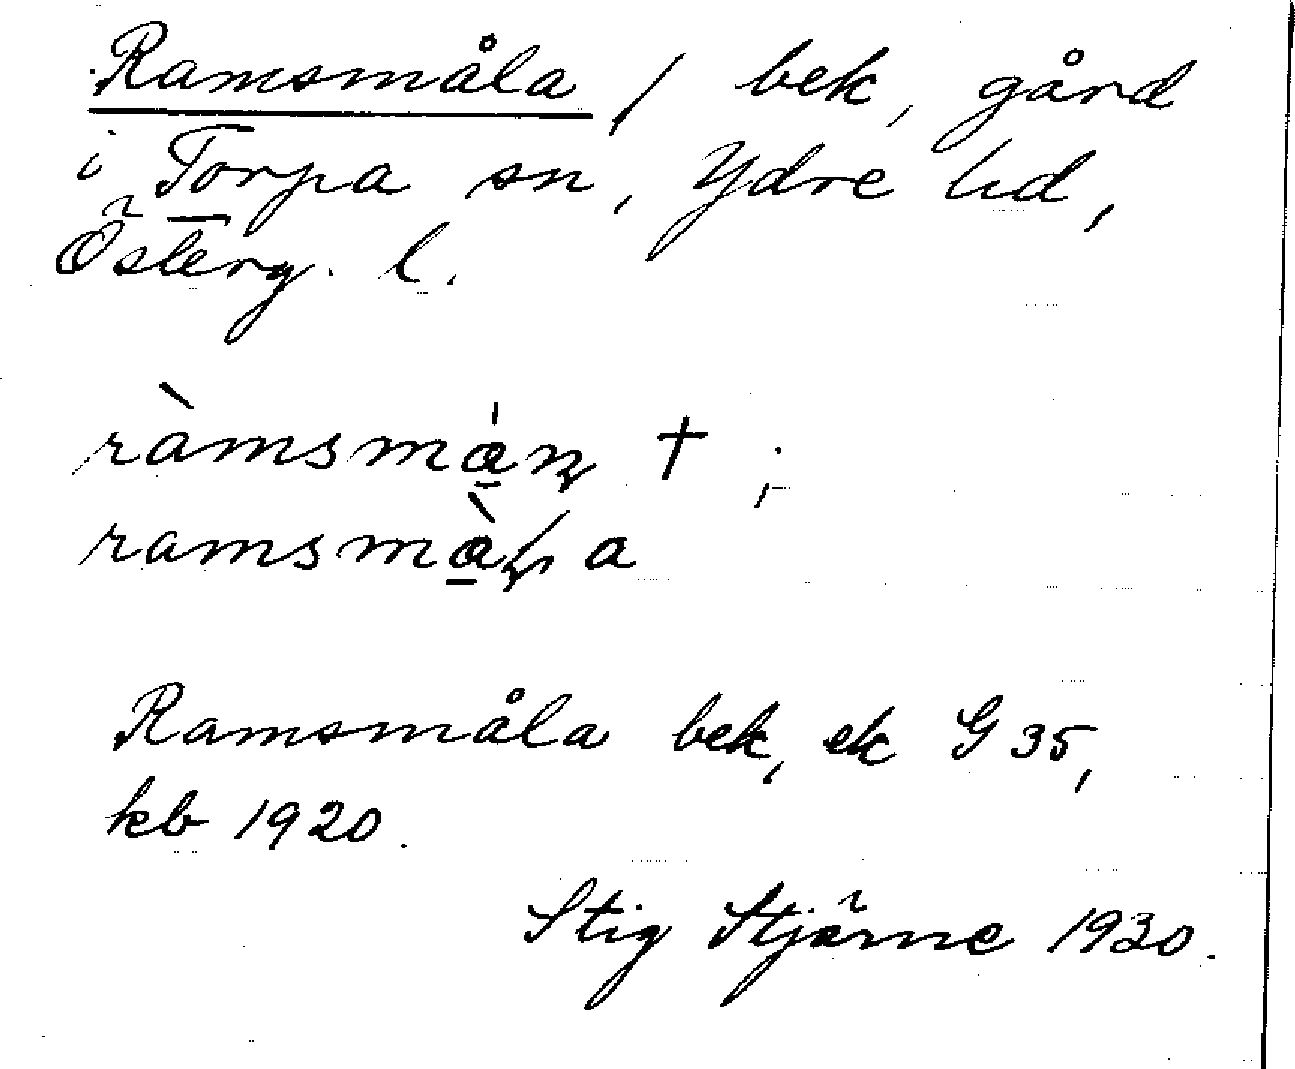 Ramsmåla / bek, gård
i Torpa sn, Ydre hd,
Österg. l.
ràmsma̱̍ɳ † ;
ramsmà̱ɭa
Ramsmåla bek, ek G 35,
kb 1920.
Stig Stjärne 1930.